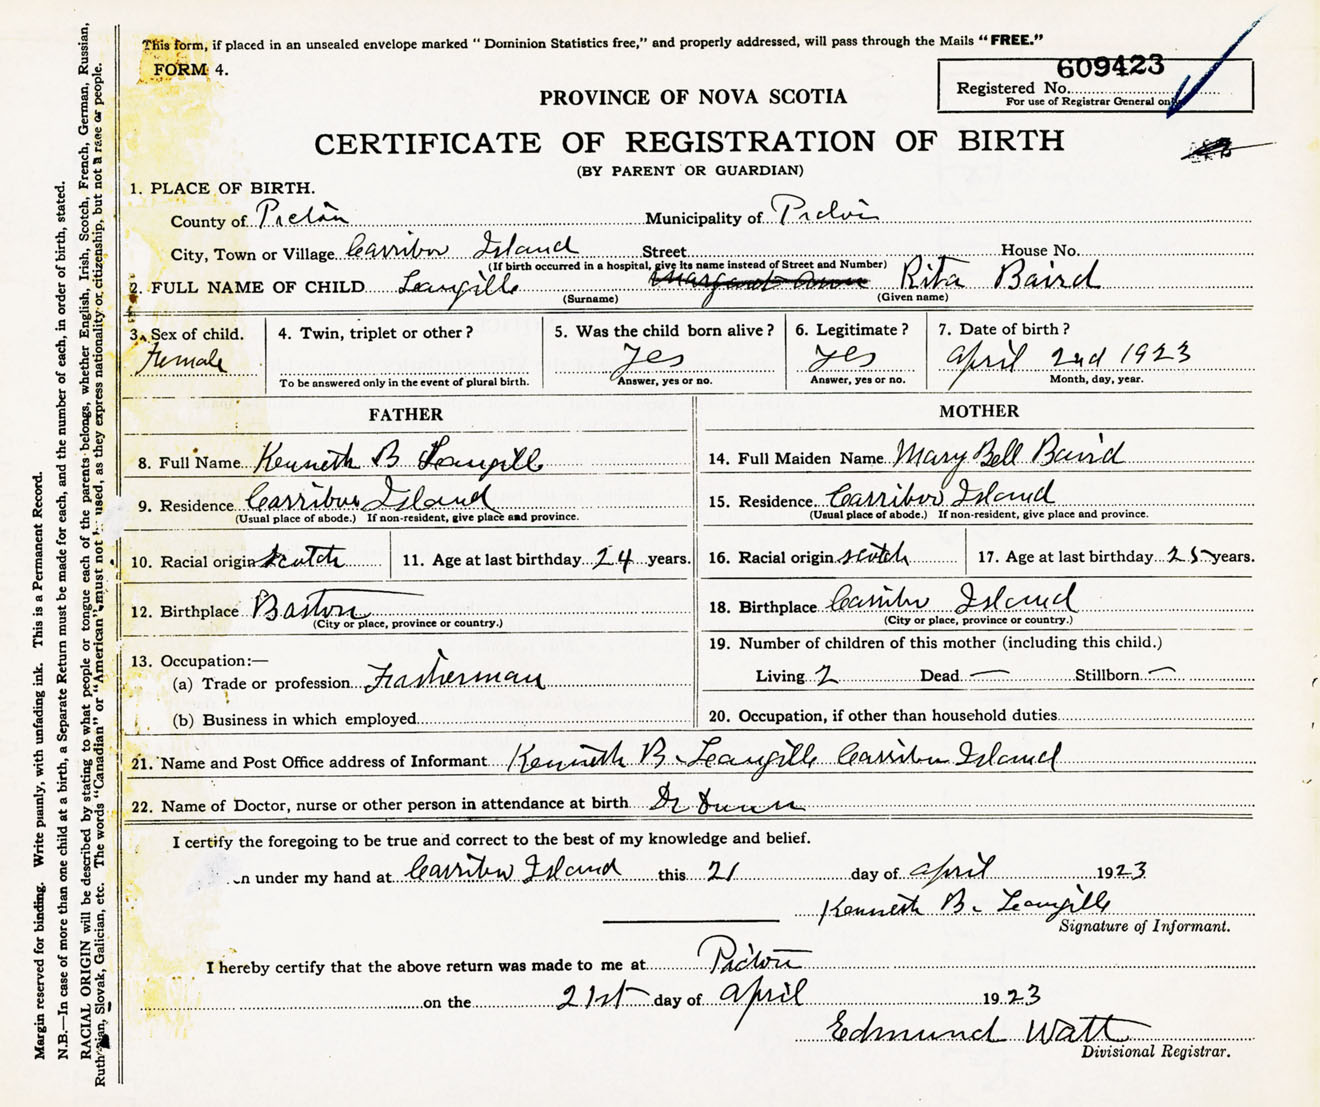 This form, if placed in an unsealed envelope marked "Dominion Statistics free," and properly addressed, will pass through the Mails "FREE."
FORM 4.
609423
Registered No.
For use of Registrar General only
PROVINCE OF NOVA SCOTIA
CERTIFICATE OF REGISTRATION OF BIRTH
(BY PARENT OR GUARDIAN)
1. PLACE OF BIRTH.
County of Pictou Municipality of Pictou
City, Town or Village Carribou Island Street House No.
(If birth occurred in a hospital, give its name instead of Street and Number)
2. FULL NAME OF CHILD Langille Margaret Anne Rita Baird
(Surname) (Given name)
3. Sex of child. 4. Twin, triplet or other? 5. Was the child born alive? 6. Legitimate? 7. Date of birth?
Female yes yes April 2nd 1923
To be answered only in the event of plural birth. Answer, yes or no. Answer, yes or no. Month, day, year.
FATHER MOTHER
8. Full Name Kenneth B Langille 14. Full Maiden Name Mary Bell Baird
9. Residence Carribou Island 15. Residence Carribou Island
(Usual place of abode.) If non-resident, give place and province. (Usual place of abode.) If non-resident, give place and province.
10. Racial origin scotch 11. Age at last birthday 24 years. 16. Racial origin scotch 17. Age at last birthday 25 years.
12. Birthplace Boston 18. Birthplace Caribou Island
(City or place, province or country.) (City or place, province or country.)
13. Occupation:— 19. Number of children of this mother (including this child.)
(a) Trade or profession Fisherman Living 2 Dead — Stillborn —
(b) Business in which employed 20. Occupation, if other than household duties
21. Name and Post Office address of Informant Kenneth B. Langille Carribou Island
22. Name of Doctor, nurse or other person in attendance at birth Dr Dunn
I certify the foregoing to be true and correct to the best of my knowledge and belief.
n under my hand at Carribou Island this 21 day of april 1923
Kenneth B. Langille
Signature of Informant.
I hereby certify that the above return was made to me at Pictou
on the 21st day of april 1923
Edmund Watt
Divisional Registrar.
Margin reserved for binding. Write plainly, with unfading ink. This is a Permanent Record.
N.B.—In case of more than one child at a birth, a Separate Return must be made for each, and the number of each, in order of birth, stated.
RACIAL ORIGIN will be described by stating to what people or tongue each of the parents belongs, whether English, Irish, Scotch, French, German, Russian,
Ruthenian, Slovak, Galician, etc. The words "Canadian" or "American" must not be used, as they express nationality or citizenship, but not a race or people.